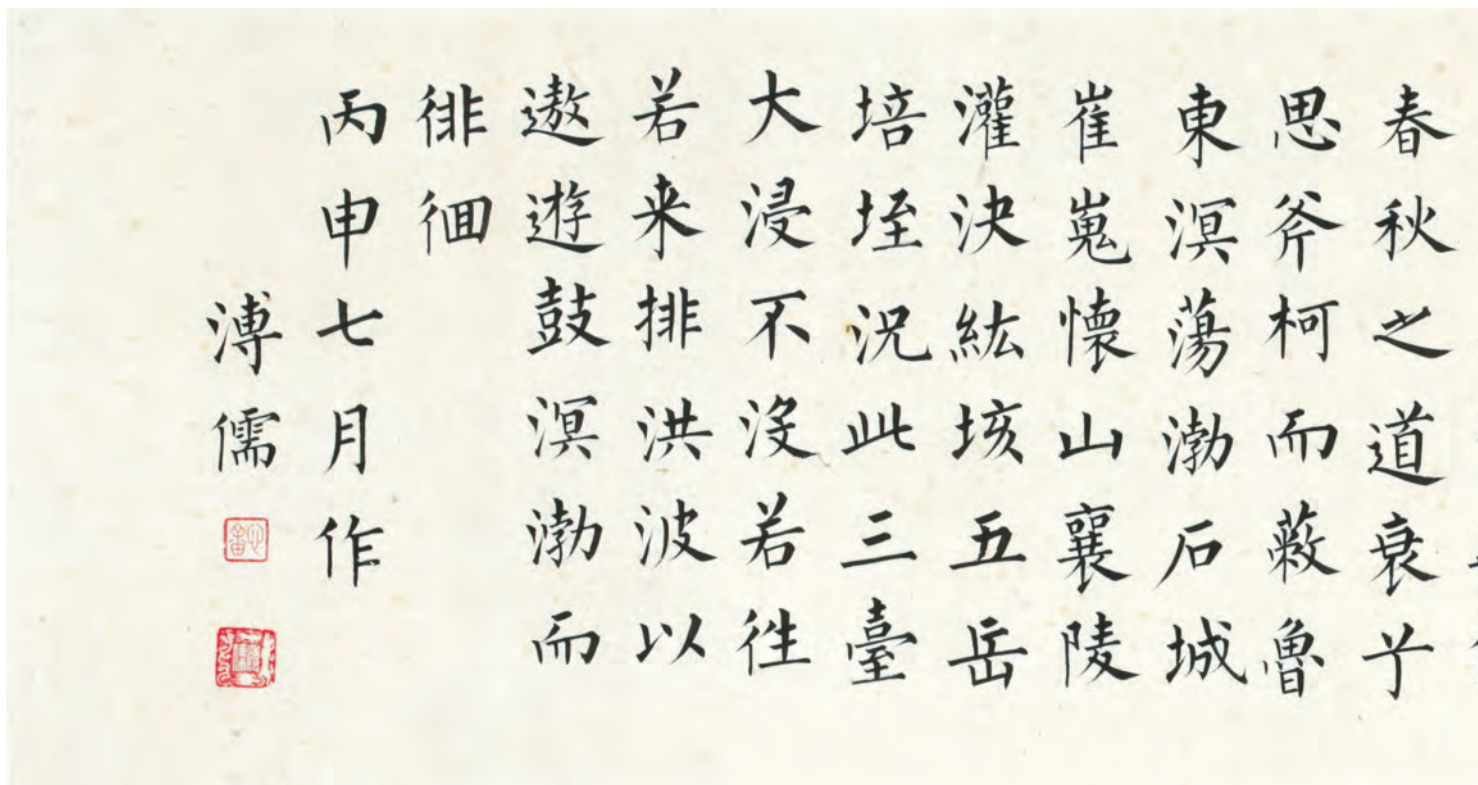 春秋之道衰兮
思斧柯而蔽魯
東溟蕩渤石城
崔嵬懷山襄陵
灌決紘垓五岳
培垤况此三臺
大浸不没若徃
若来排洪波以
遨遊鼓溟渤而
徘徊
丙申七月作
溥儒